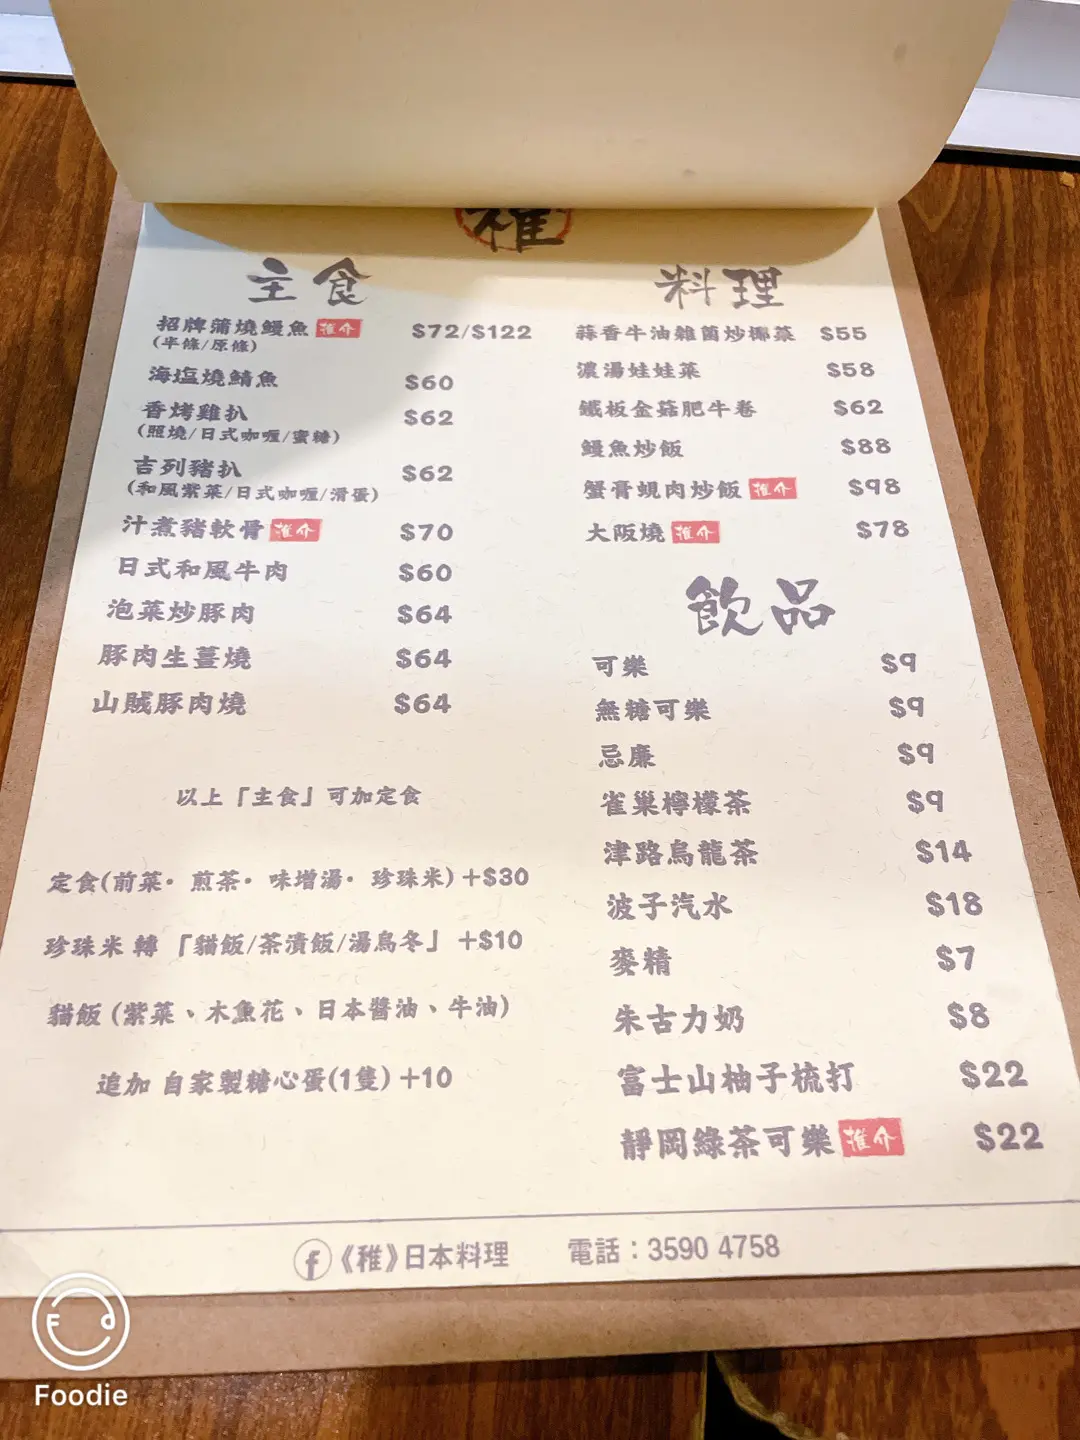 稚
主食
招牌蒲燒鰻魚 推介 $72/$122
(半條/原條)
海塩燒鯖魚 $60
香烤雞扒 $62
(照燒/日式咖喱/蜜糖)
吉列豬扒 $62
(和風紫菜/日式咖喱/滑蛋)
汁煮豬軟骨 推介 $70
日式和風牛肉 $60
泡菜炒豚肉 $64
豚肉生薑燒 $64
山賊豚肉燒 $64
以上「主食」可加定食
定食(前菜· 煎茶· 味增湯· 珍珠米) +$30
珍珠米 轉 「貓飯/茶漬飯/湯烏冬」 +$10
貓飯 (紫菜、木魚花、日本醬油、牛油)
追加 自家製糖心蛋(1隻) +10
料理
蒜香牛油雜菌炒椰菜 $55
濃湯娃娃菜 $58
鐵板金菇肥牛卷 $62
鰻魚炒飯 $88
蟹膏蜆肉炒飯 推介 $98
大阪燒 推介 $78
飲品
可樂 $9
無糖可樂 $9
忌廉 $9
雀巢檸檬茶 $9
津路烏龍茶 $14
波子汽水 $18
麥精 $7
朱古力奶 $8
富士山柚子梳打 $22
靜岡綠茶可樂 推介 $22
f《稚》日本料理 電話：3590 4758
Foodie